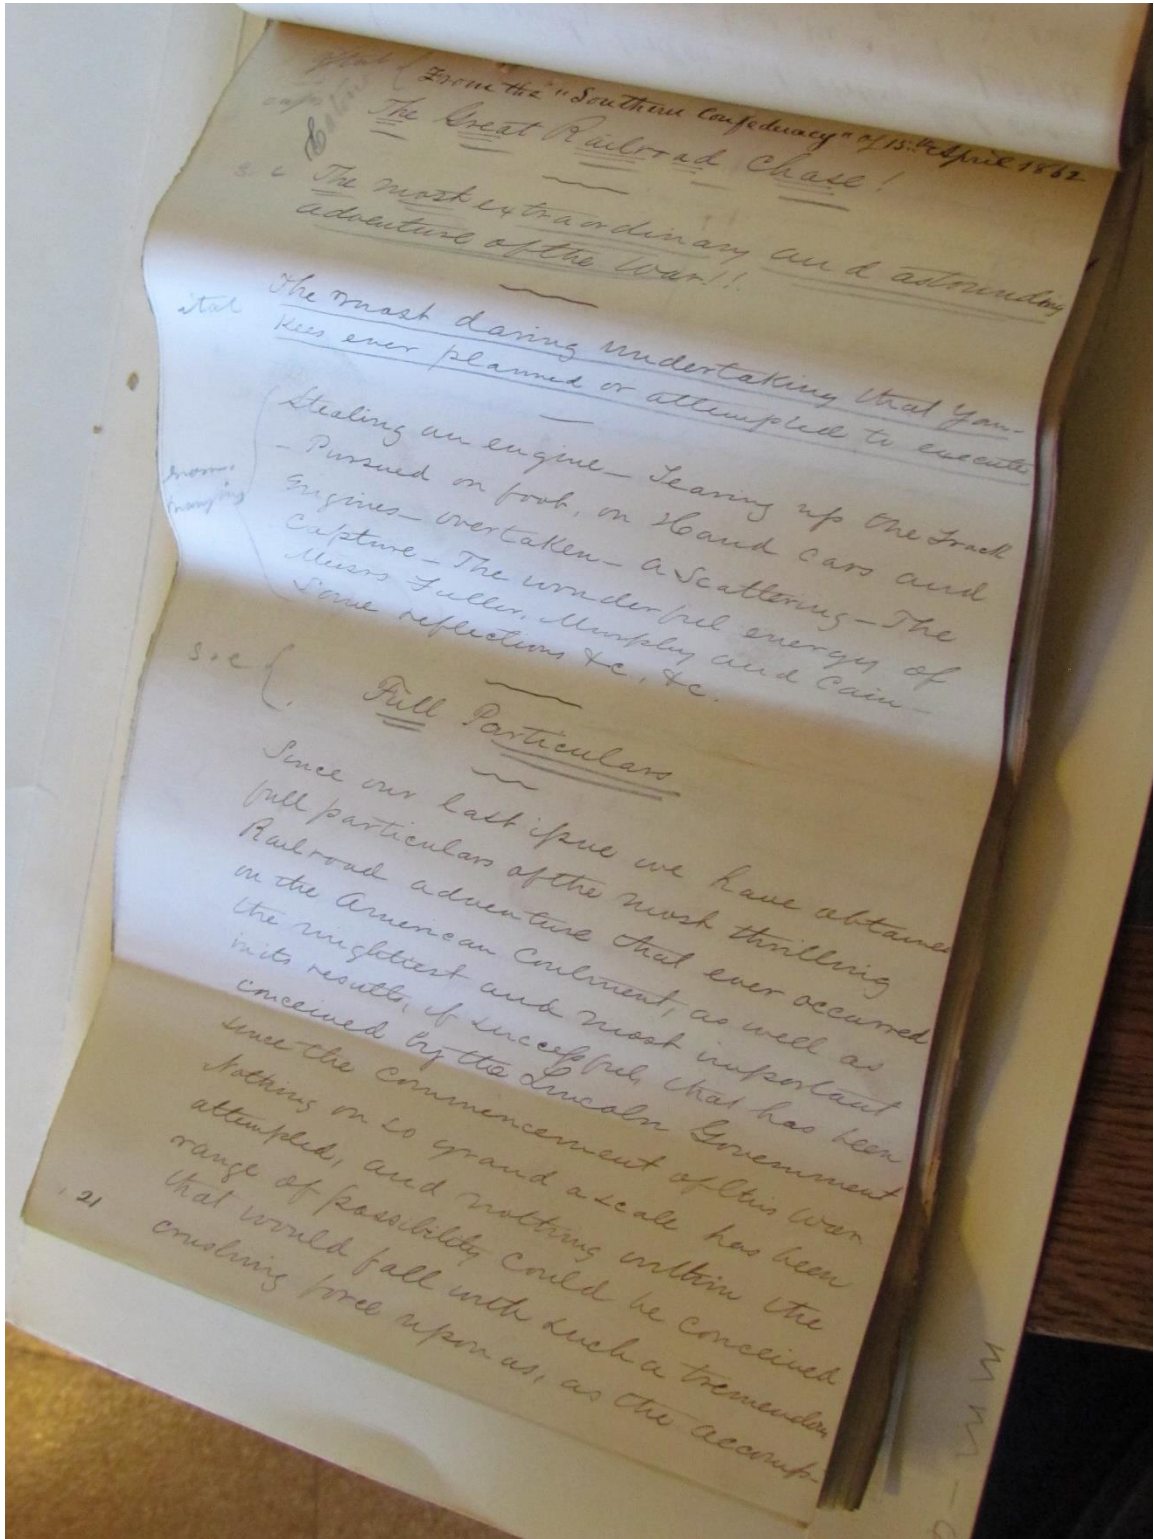 From the "Southern Confederacy" of 15th April 1862
caps
The Great Railroad Chase!
s. c
The most extraordinary and astounding
adventure of the War!!
ital
The most daring undertaking that Yan-
kees ever planned or attempted to execute
Stealing an engine — Tearing up the Track
— Pursued on foot, on Hand cars and
Engines — overtaken — a Scattering — The
Capture — The wonderful energy of
Messrs Fuller, Murphy and Cain —
Some reflections &c, &c.
s. c
Full Particulars
Since our last issue we have obtained
full particulars of the most thrilling
Railroad adventure that ever occurred
on the American Continent, as well as
the mightiest and most important
in its results, if successful, that has been
conceived by the Lincoln Government
since the commencement of this war
Nothing on so grand a scale has been
attempted, and nothing within the
range of possibility could be conceived
that would fall with such a tremendous
crushing force upon us, as the accomp-
21